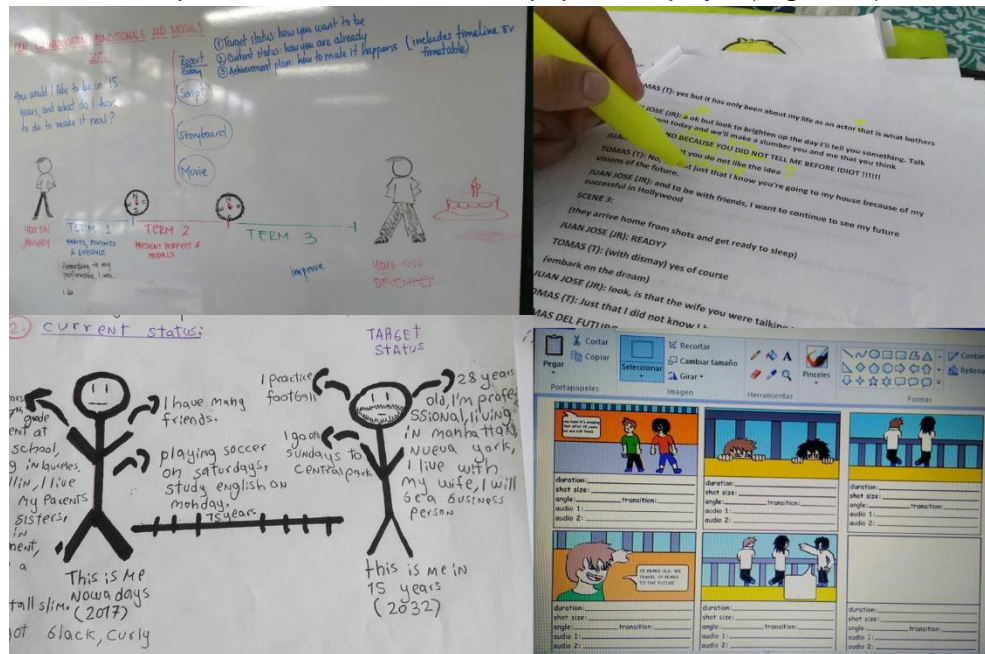 CONDITIONALS AND MODALS
How would I like to be in 15
years, and what do I have
to do to make it real?
Report
Essay
① Target status: how you want to be
② Current status: how you are already
③ Achievement plan: how to make it happens (includes timeline or
timetable)
Script
Storyboard
Movie
YOU IN
JANUARY
TERM 1
HABITS, ROUTINES
& LIFESTYLE
TERM 2
PRESENT PERFECT &
MODALS
TERM 3
improve
YOU IN
DECEMBER
I do
TOMAS (T): yes but it has only been about my life as an actor that is what bothers
JOSE (JR): a ok but look to brighten up the day I'll tell you something. Talk
today and we'll make a slumber you and me that you think
AND BECAUSE YOU DID NOT TELL ME BEFORE IDIOT !!!!!!
you do not like the idea
TOMAS (T): No, just that I know you're going to my house because of my
visions of the future.
JUAN JOSE (JR): and to be with friends, I want to continue to see my future
successful in Hollywood
SCENE 3:
(they arrive home from shots and get ready to sleep)
JUAN JOSE (JR): READY?
TOMAS (T): (with dismay) yes of course
(embark on the dream)
JUAN JOSE (JR): look, is that the wife you were talking
TOMAS (T): Just that I did not know
MAS DEL FUTURO
2. current status:
TARGET
STATUS
grade
at
school,
I live
My Parents
sisters,
in
a
I have many
friends.
playing soccer
on saturdays,
study english on
monday.
15 years
This is Me
Nowadays
(2017)
tall slim.
black, curly
I practice
football
I go on
sundays to
central park
28 years
old, I'm profe
ssional, living
in manhattan,
nueva york,
I live with
my wife, I will
be a business
person
this is me in
15 years
(2032)
Pegar
Cortar
Copiar
Portapapeles
Seleccionar
Recortar
Cambiar tamaño
Girar
Imagen
Herramientas
Pinceles
Formas
Contor
Rellena
duration:
shot size:
angle: transition:
audio 1:
audio 2:
duration:
shot size:
angle: transition:
audio 1:
audio 2:
duration:
shot size:
angle: transition:
audio 1:
audio 2:
15 YEARS OLD, WE
TRAVEL 15 YEARS
TO THE FUTURE
duration:
shot size:
angle: transition:
audio 1:
audio 2:
duration:
shot size:
angle: transition:
audio 1:
audio 2:
duration:
shot size:
angle: transition:
audio 1:
audio 2: